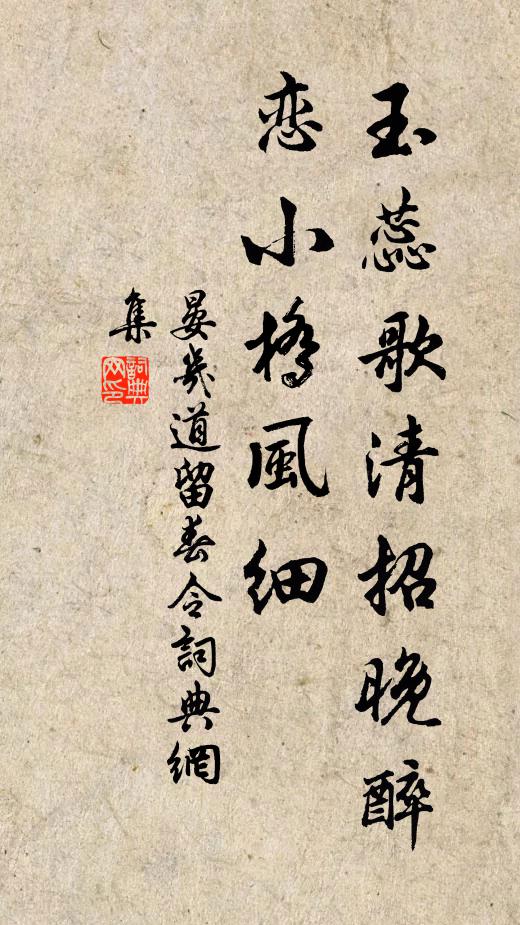 玉蕊歌清招晚醉
恋小橋風细
晏幾道留春令詞典網
集
詞典
网印